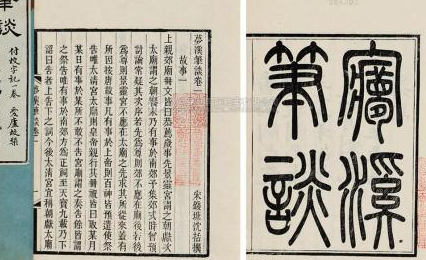 筆談
付校字記一卷 愛廬叢
夢溪筆談卷一
宋錢塘沈括撰
故事一
上親郊廟冊文皆曰恭薦歲事先景靈宮謂之朝獻次
太廟謂之朝饗末乃有事於南郊予集郊式時曾預
討論常疑其次序若先為尊則郊不應在廟後若後
為尊則景靈宮不應在太廟之先求其所從來蓋有
所因按唐故事凡有事於上帝則百神皆預遣使祭
告唯太清宮太廟則皇帝親行其冊祝皆曰取某月
某日有事於某所不敢不告宮廟謂之奏告餘皆謂
之祭告唯有事於南郊方為正祠至天寶九載乃下
詔曰告者上告下之詞今後太清宮宜稱朝獻太廟
夢溪筆談卷一
夢溪
筆談